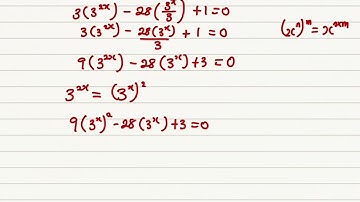 3(3^{2x}) - 28(3^x/3) + 1 = 0
3(3^{2x}) - 28(3^x)/3 + 1 = 0
(x^n)^m = x^{nxm}
9(3^{2x}) - 28(3^x) + 3 = 0
3^{2x} = (3^x)^2
9(3^x)^2 - 28(3^x) + 3 = 0